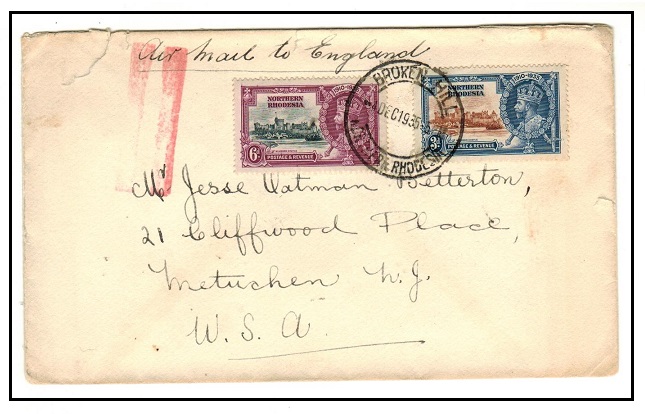 Air Mail to England
1910-1935
NORTHERN
RHODESIA
6D
POSTAGE & REVENUE
BROKEN HILL
DEC 1935
NORTHERN RHODESIA
1910-1935
NORTHERN
RHODESIA
3D
POSTAGE & REVENUE
Mr Jesse Oatman Betterton,
21 Cliffwood Place,
Metuchen N.J.
U.S.A.